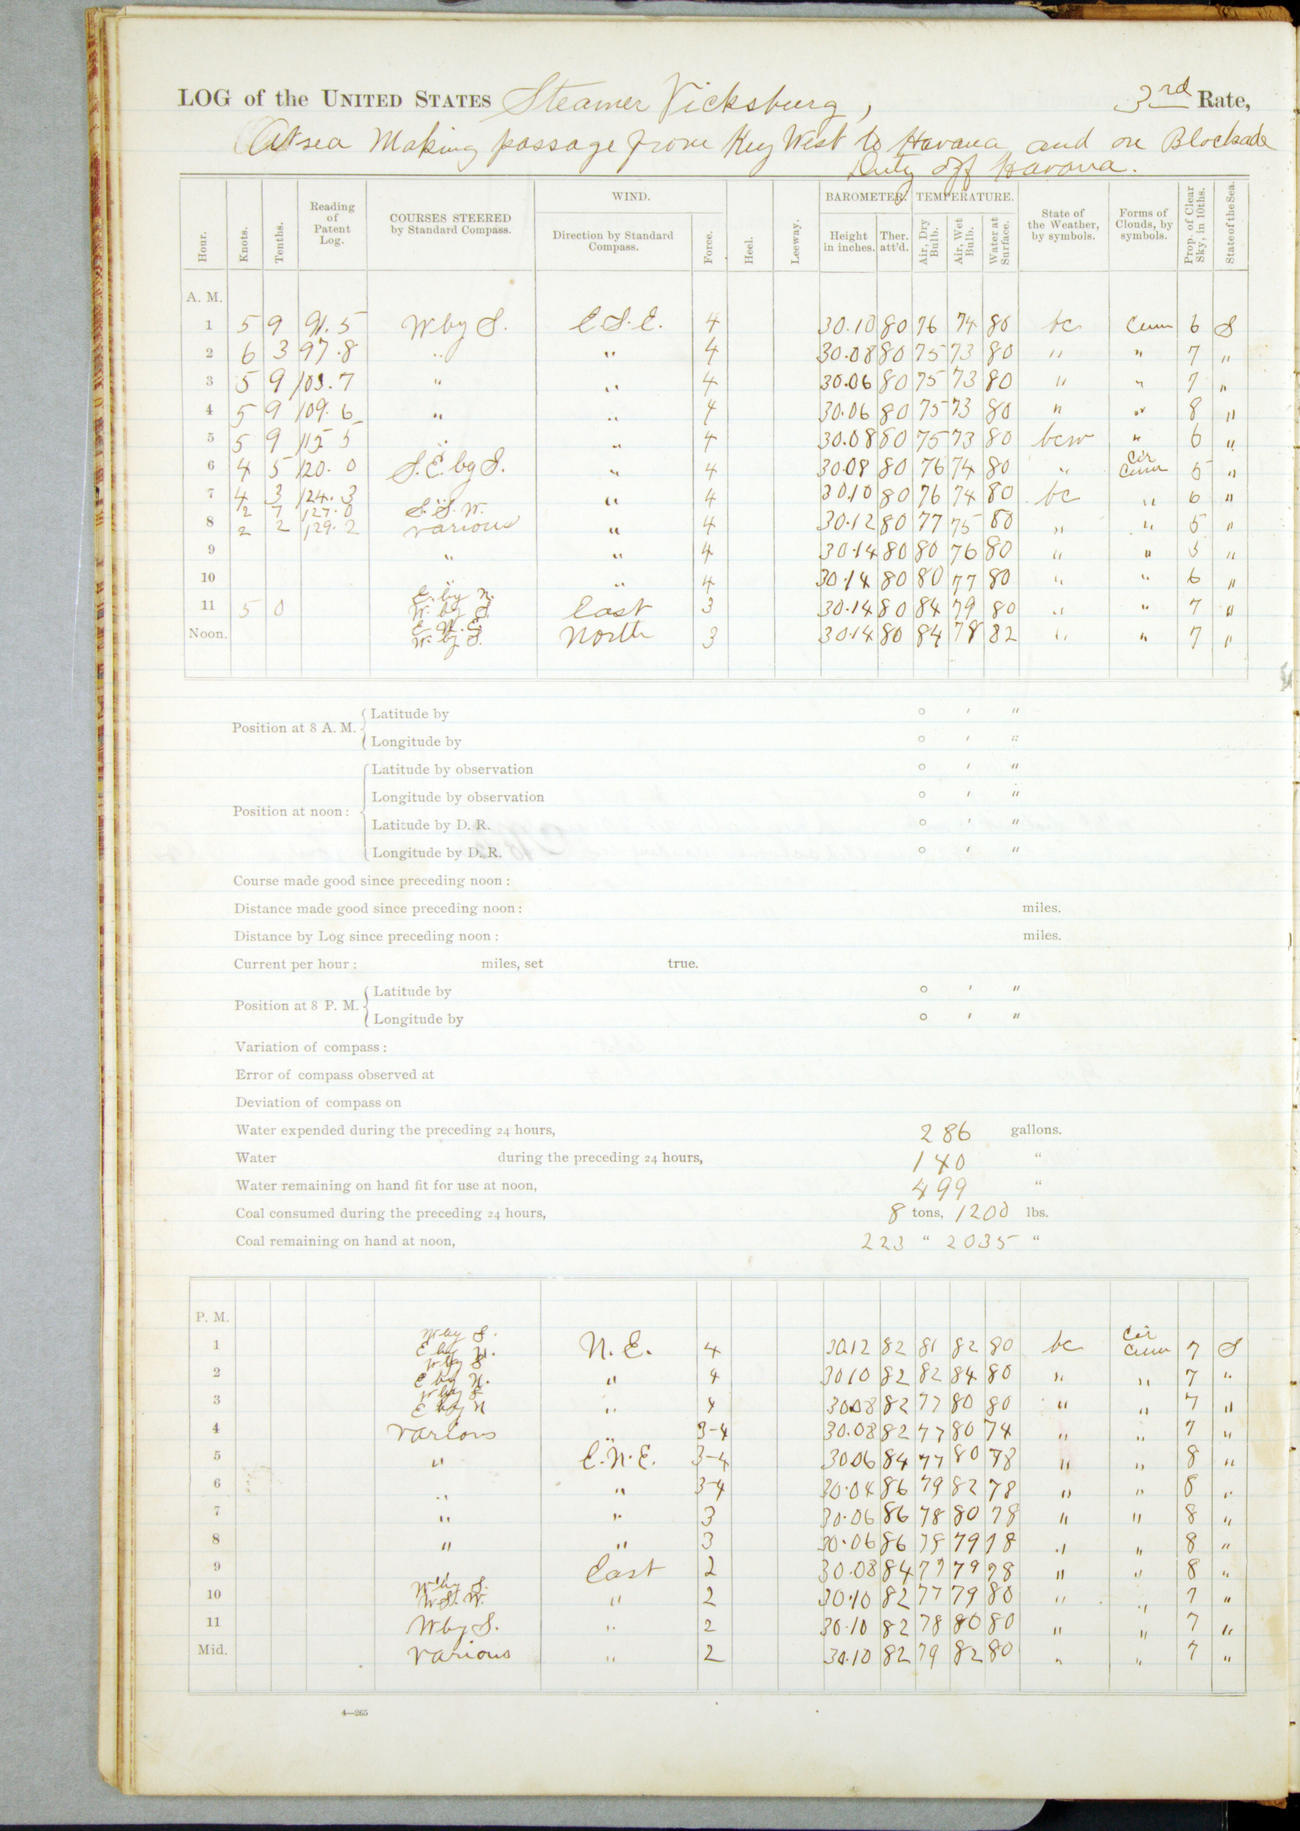 LOG of the UNITED STATES Steamer Vicksburg, 3rd Rate,
At sea Making passage from Key West to Havana and on Blockade
Duty off Havana.
Hour. Knots. Tenths. Reading of Patent Log. COURSES STEERED by Standard Compass. WIND. Direction by Standard Compass. Force. Heel. Leeway. BAROMETER. Height in inches. Ther. att'd. TEMPERATURE. Air, Dry Bulb. Air, Wet Bulb. Water at Surface. State of the Weather, by symbols. Forms of Clouds, by symbols. Prop. of Clear Sky, in 10ths. State of the Sea.
A. M.
1 5 9 91.5 W by S. E.S.E. 4 30.10 80 76 74 80 bc Cum 6 S
2 6 3 97.8 " " 4 30.08 80 75 73 80 " " 7 "
3 5 9 103.7 " " 4 30.06 80 75 73 80 " " 7 "
4 5 9 109.6 " " 4 30.06 80 75 73 80 " " 8 "
5 5 9 115 5 " " 4 30.08 80 75 73 80 bcw " 6 "
6 4 5 120.0 S.E. by S. " 4 30.08 80 76 74 80 " Cir Cum 5 "
7 4 3 124.3 " " 4 30.10 80 76 74 80 bc " 6 "
2 7 127.0 S.S.W.
8 2 2 129.2 various " 4 30.12 80 77 75 80 " " 5 "
9 " " 4 30.14 80 80 76 80 " " 5 "
10 " " 4 30.14 80 80 77 80 " " 6 "
E. by N.
11 5 0 W. by S. East 3 30.14 80 84 79 80 " " 7 "
E. N. E.
Noon. W. by S. North 3 30.14 80 84 78 82 " " 7 "
Position at 8 A. M. Latitude by ° ′ ″
Longitude by ° ′ ″
Position at noon: Latitude by observation ° ′ ″
Longitude by observation ° ′ ″
Latitude by D. R. ° ′ ″
Longitude by D. R. ° ′ ″
Course made good since preceding noon:
Distance made good since preceding noon: miles.
Distance by Log since preceding noon: miles.
Current per hour: miles, set true.
Position at 8 P. M. Latitude by ° ′ ″
Longitude by ° ′ ″
Variation of compass:
Error of compass observed at
Deviation of compass on
Water expended during the preceding 24 hours, 286 gallons.
Water during the preceding 24 hours, 140 "
Water remaining on hand fit for use at noon, 499 "
Coal consumed during the preceding 24 hours, 8 tons, 1200 lbs.
Coal remaining on hand at noon, 223 " 2035 "
P. M.
W by S.
1 E by N. N. E. 4 30.12 82 81 82 80 bc Cir Cum 7 S
W by S
2 E by N. " 4 30 10 82 82 84 80 " " 7 "
W by S
3 E by N " 4 30.08 82 77 80 80 " " 7 "
4 various " 3-4 30.08 82 77 80 74 " " 7 "
5 " E.N.E. 3-4 30.06 84 77 80 78 " " 8 "
6 " " 3-4 30.04 86 79 82 78 " " 8 "
7 " " 3 30.06 86 78 80 78 " " 8 "
8 " " 3 30.06 86 78 79 78 " " 8 "
9 East 2 30.08 84 77 79 78 " " 8 "
W by S.
10 W.S.W. " 2 30.10 82 77 79 80 " " 7 "
11 W by S. " 2 30.10 82 78 80 80 " " 7 "
Mid. various " 2 30.10 82 79 82 80 " " 7 "
4—265